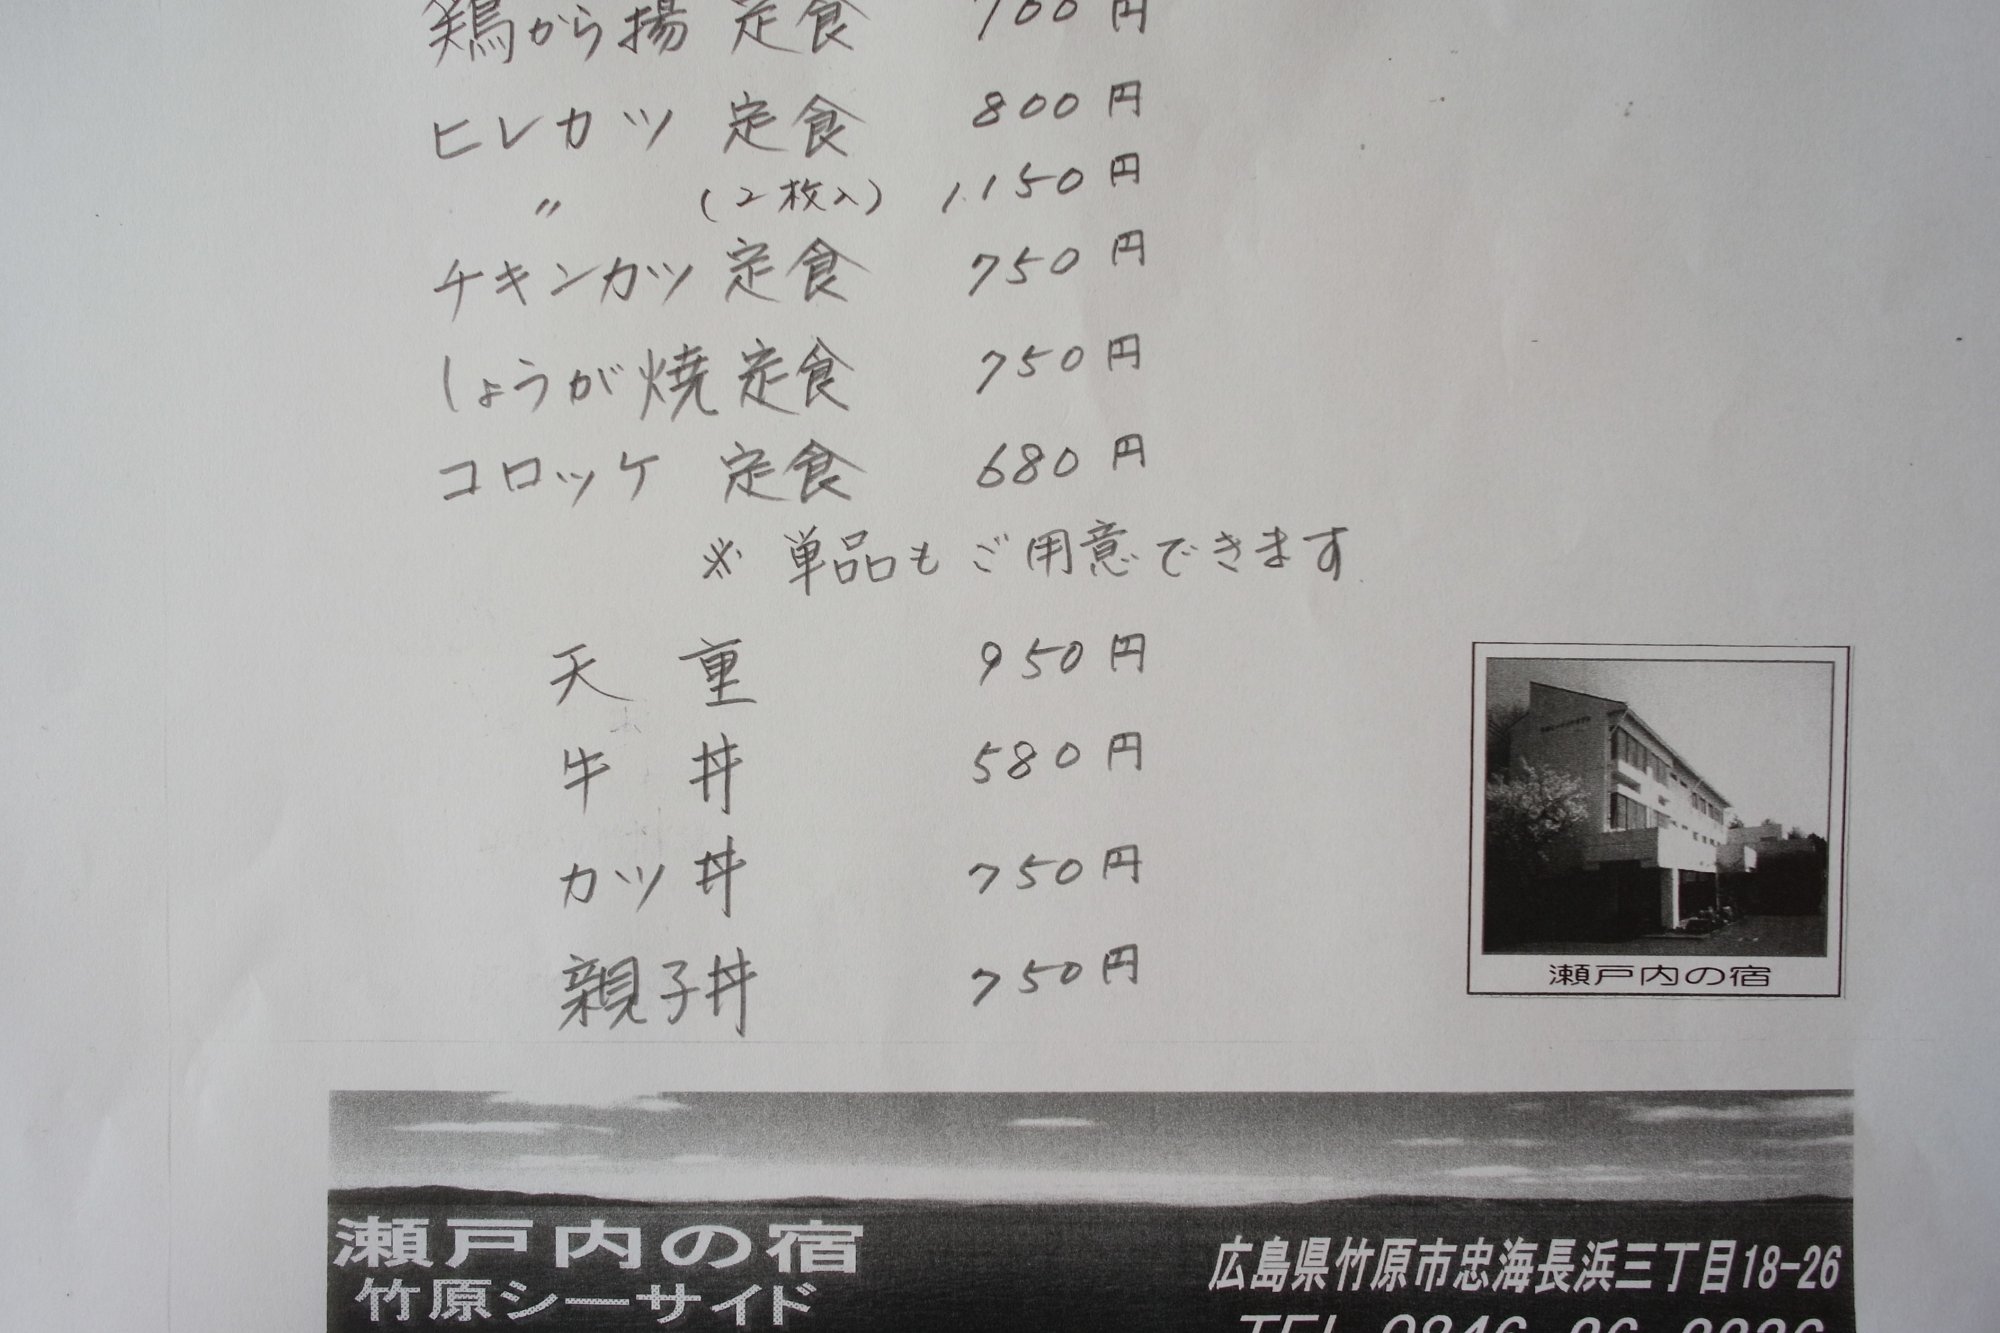 鶏から揚 定食 700円
ヒレカツ 定食 800円
〃 (2枚入) 1,150円
チキンカツ 定食 750円
しょうが焼 定食 750円
コロッケ 定食 680円
※ 単品もご用意できます
天重 950円
牛丼 580円
カツ丼 750円
親子丼 750円
瀬戸内の宿
瀬戸内の宿
竹原シーサイド
広島県竹原市忠海長浜三丁目18-26
TEL 0846-26-